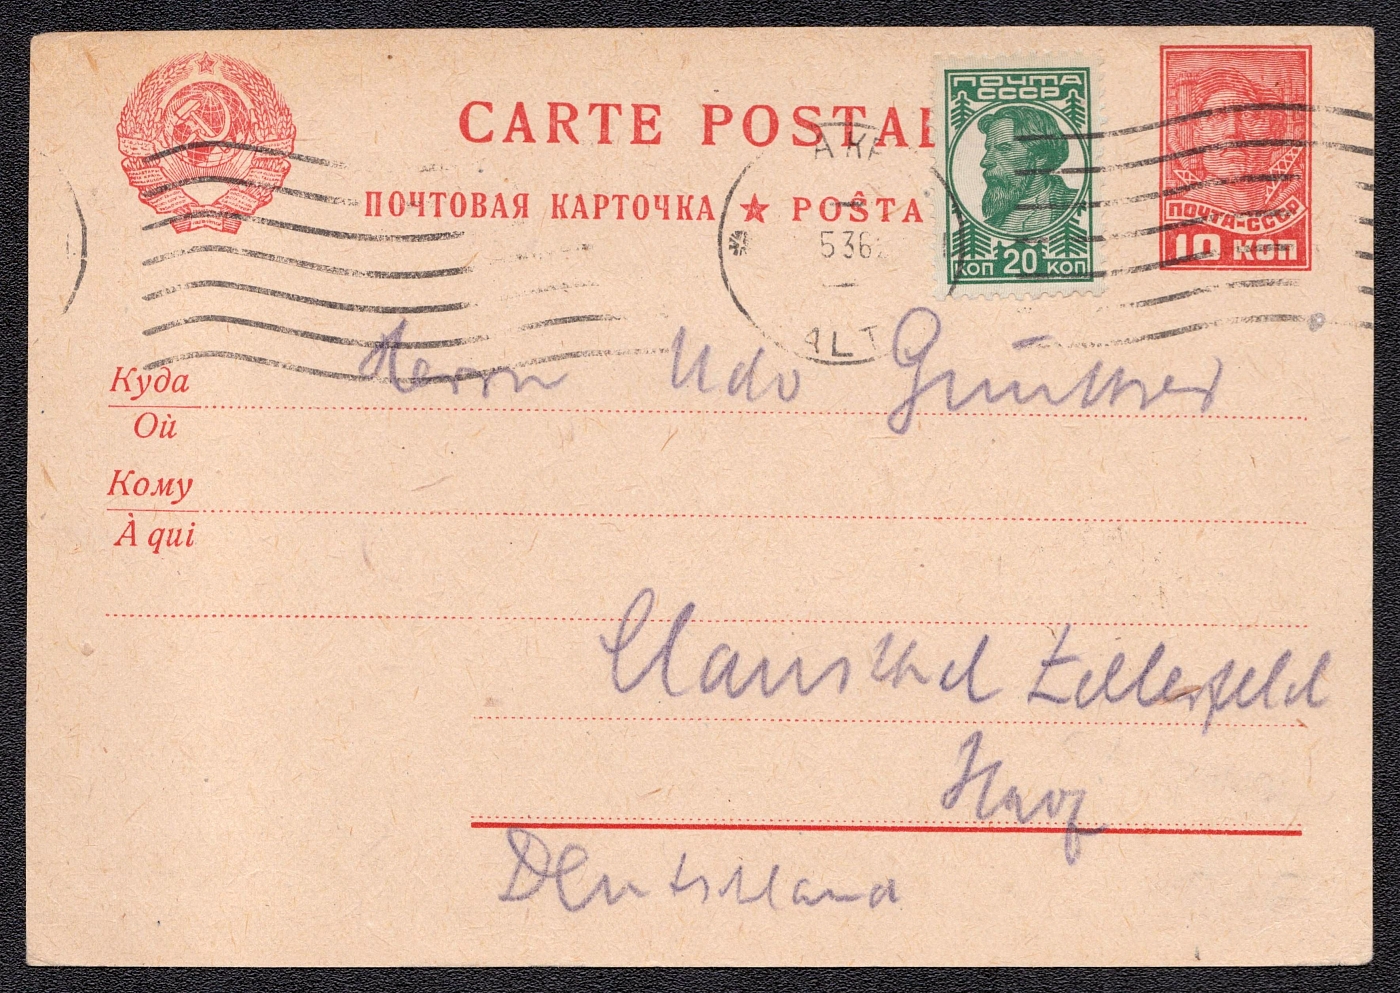 CARTE POSTAL
ПОЧТОВАЯ КАРТОЧКА ★ POŜTA
ПОЧТА
СССР
КОП 20 КОП
ПОЧТА-СССР
10 КОП
536
ALT
Куда
Où
Herrn Udo Günther
Кому
À qui
Clausthal Zellerfeld
Harz
Deutschland